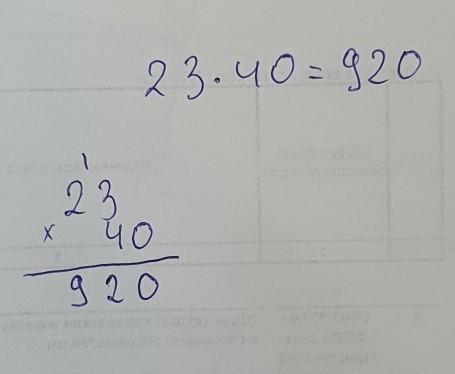 23 · 40 = 920
1
23
× 40
920